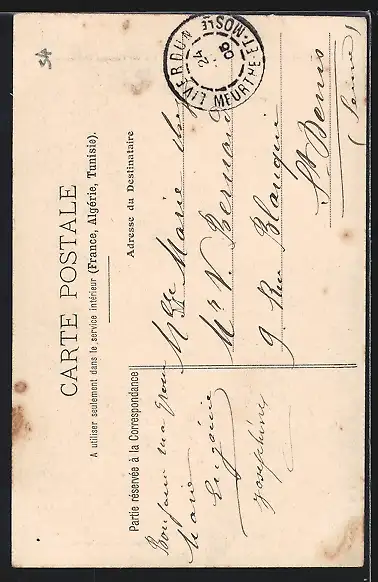 54
CARTE POSTALE
A utiliser seulement dans le service intérieur (France, Algérie, Tunisie).
Partie réservée à la Correspondance
Adresse du Destinataire
LIVERDUN
24
06
MEURTHE-ET-MOSLE
Bonjour ma
Marie
Eugénie
Joséphine
Melle Marie
Mr V. Bernard
9 Rue Blanqui
St Denis
(Seine)